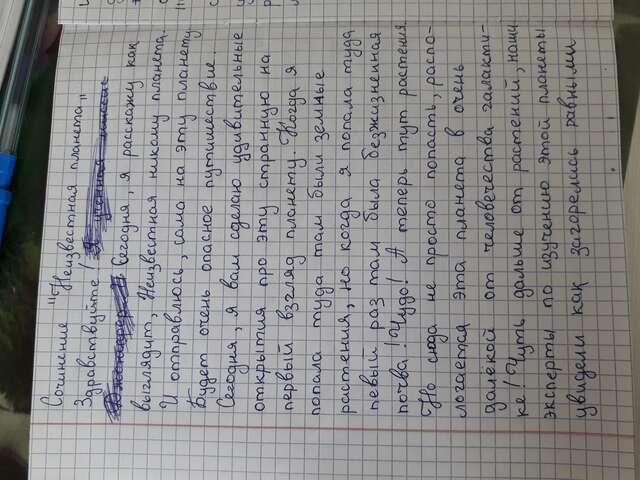 Сочинение "Неизвестная планета"
Здравствуйте!
Сегодня, я расскажу как
выглядит, Неизвестная никому планета.
И отправлюсь, сама на эту планету.
Будет очень опасное путишествие
Сегодня, я вам сделаю удивительные
открытия про эту странную на
первый взгляд планету. Когда я
попала туда там были земные
растения, но когда я попала туда
певый раз там была безжизненная
почва! Чудо! А теперь тут растения
Но сюда не просто попасть, распо-
логается эта планета в очень
далёкой от человечества галакти-
ке! Чуть дальше от растений, наши
эксперты по изучению этой планеты
увидели как загорелись равными